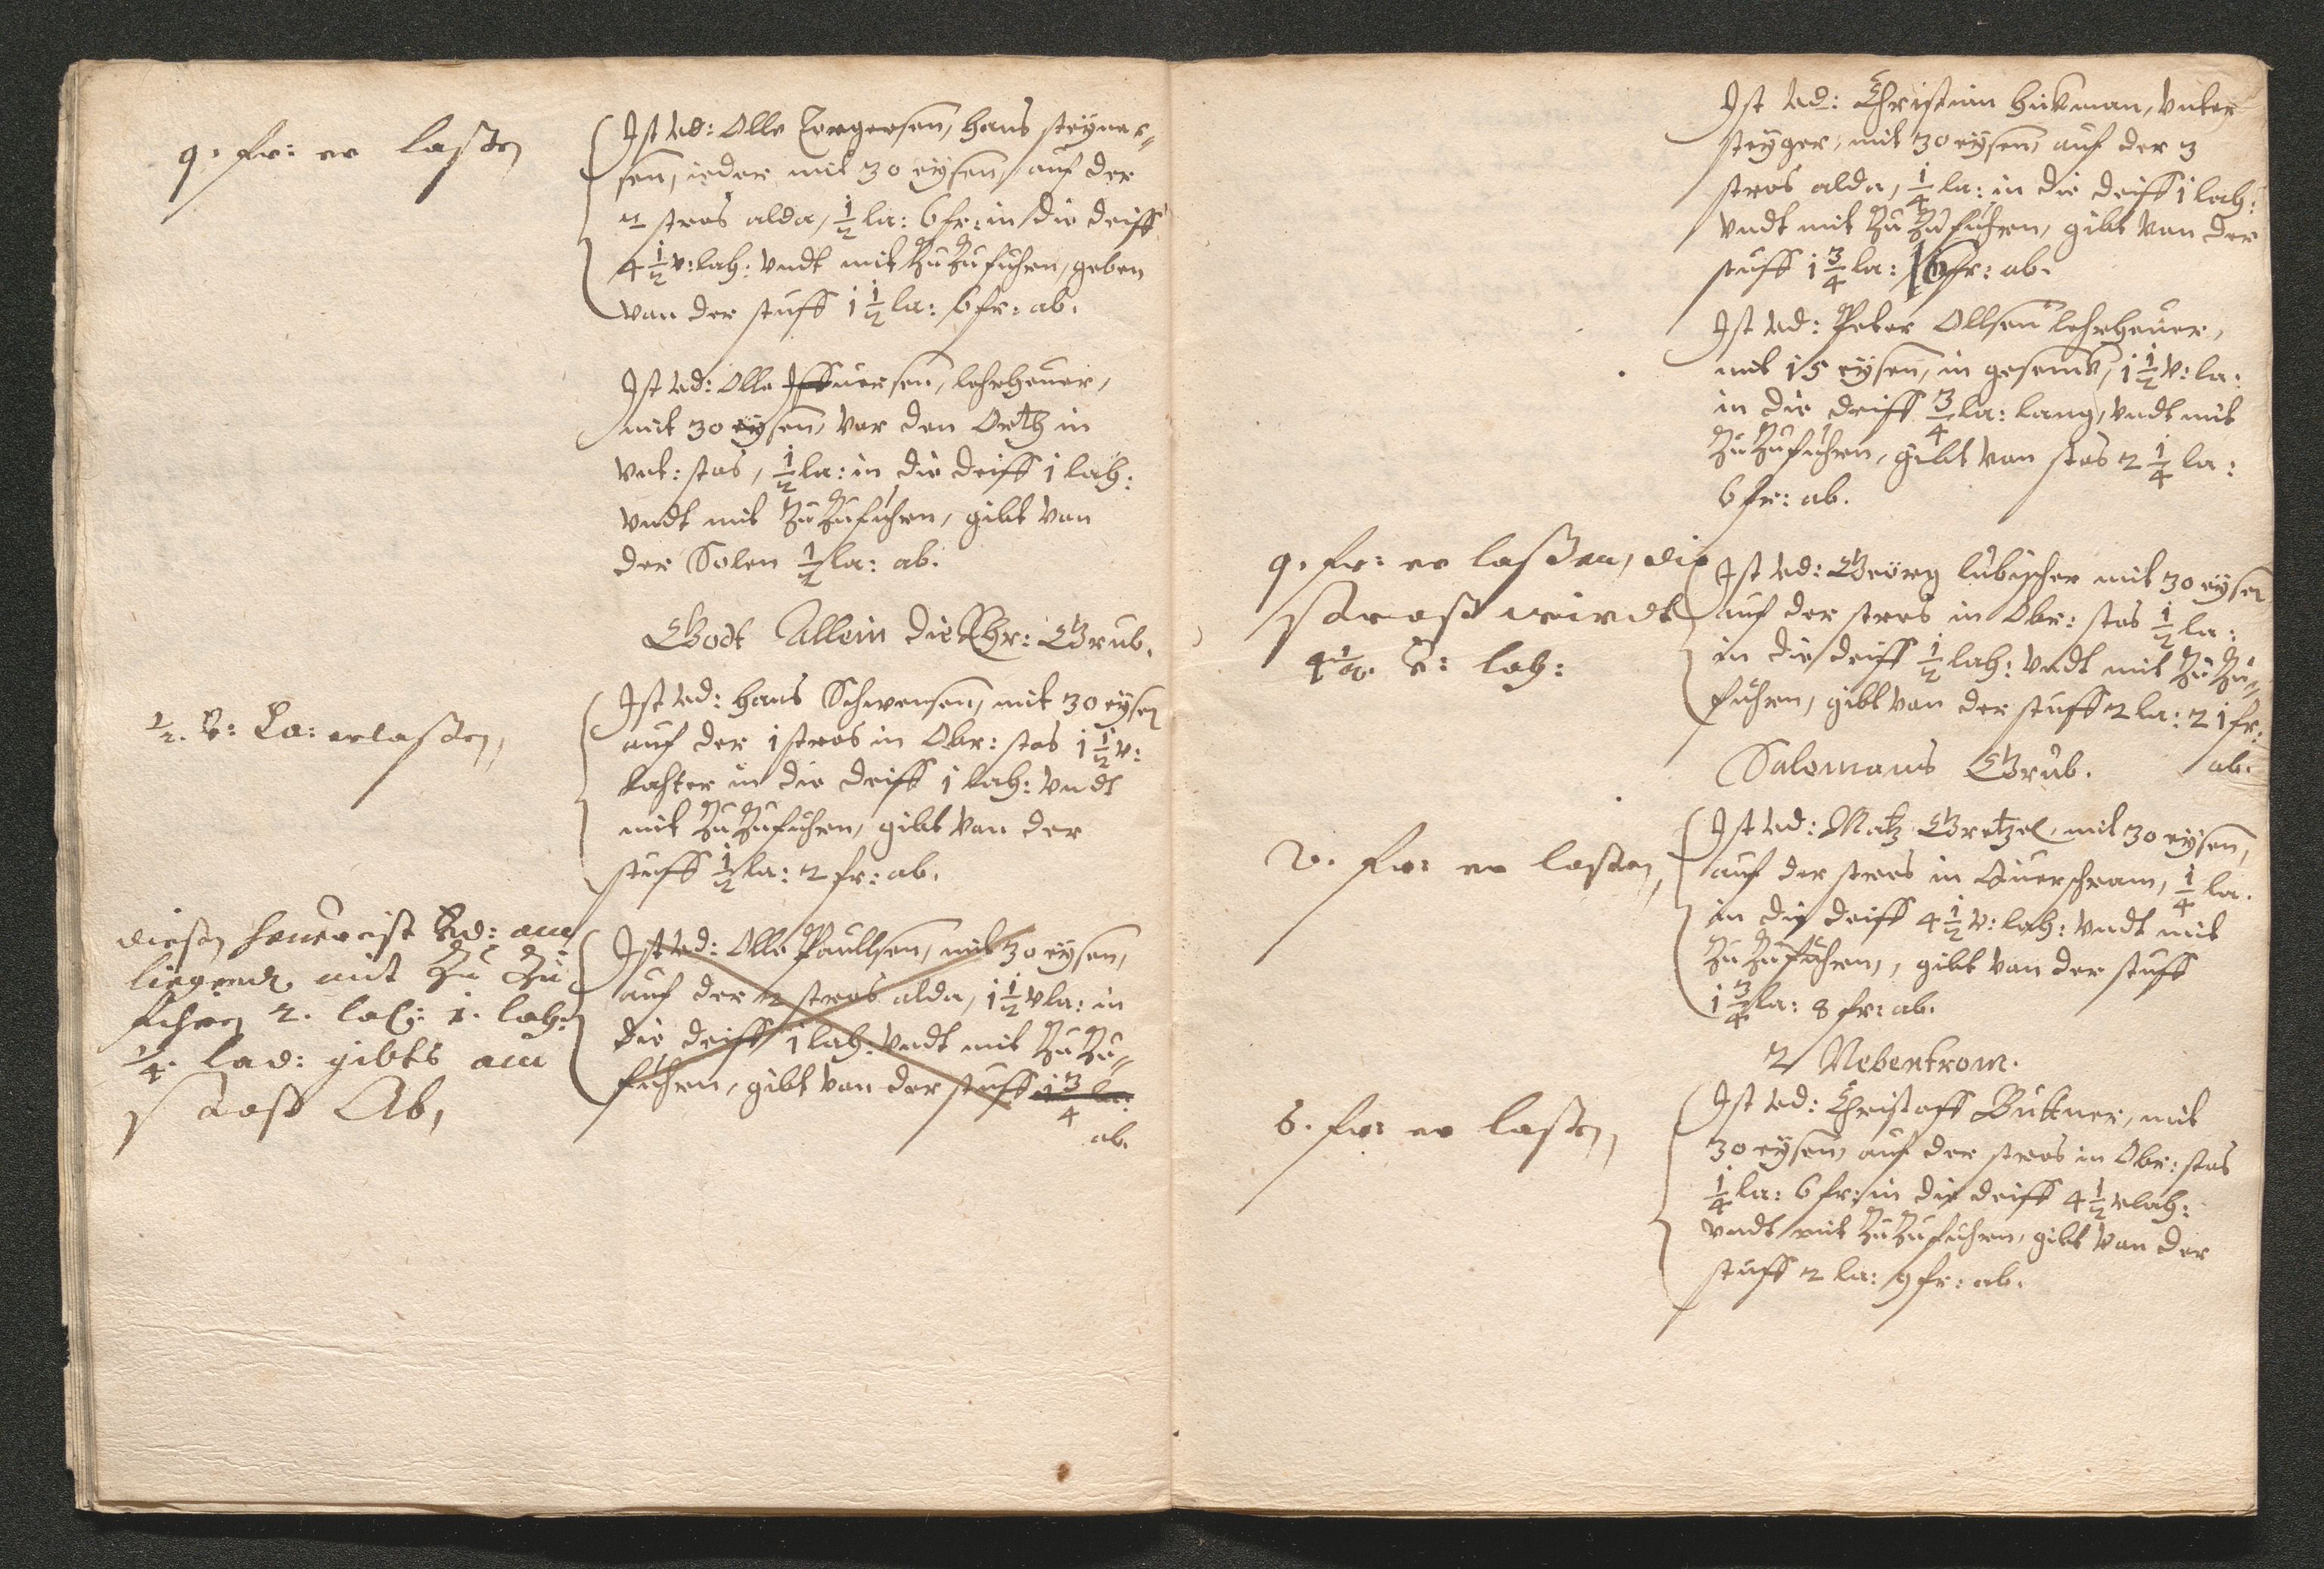 9. fr: er laßen
Ist ad: Olle Torgersen, hans steyner-
sen, ieder mit 30 eysen, auf der
2 stros alda, 1/2 la: 6 fr: in die deiff
4 1/2 v: lah: vndt mit Zu Zufuhren, geben
van der stuff 1 1/2 la: 6 fr: ab.
Ist ad: Olle Iffuersen, lehrheuer,
mit 30 eysen, vor den Orth in
vnt: stos, 1/2 la: in die deiff 1 lah:
vndt mit Zu Zufuhren, gibt van
der Solen 1/2 la: ab.
Godt Allein die Ehr: Grub.
1/2. v: La: erlaßen,
Ist ad: hans Schwensen, mit 30 eysen
auf der 1 stros in Obr: stos 1 1/2 v:
lahter in die deiff 1 lah: vndt
mit Zu Zufuhren, gibt van der
stuff 1/2 la: 2 fr: ab.
diesen heuer ist ad: am
liegend mit Zu Zu
fuhren 2. lah: 1. lah:
1/4. lad: gibts am
stoss Ab,
Ist ad: Olle Paullsen, mit 30 eysen,
auf der 2 stros alda, 1 1/2 v la: in
die deiff 1 lah: vndt mit Zu Zu-
fuhren, gibt van der stuff 1 3/4 la:
ab.
Ist ad: Christian hickman, vnter
steyger, mit 30 eysen, auf der 3
stros alda, 1/4 la: in die deiff 1 lah:
vndt mit Zu Zufuhren, gibt van der
stuff 1 3/4 la: 6 fr: ab.
Ist ad: Peter Ollsen lehrheuer,
mit 15 eysen, in gesenck, 1 1/2 v: la:
in die deiff 3/4 la: lang, vndt mit
Zu Zufuhren, gibt van stos 2 1/4 la:
6 fr: ab.
9. fr: er laßen, die
strosse wirdt
4 1/2. v: lah:
Ist ad: Georg lubischer mit 30 eysen
auf der stros in Obr: stos 1/2 la:
in die deiff 1/2 lah: vndt mit Zu Zu-
fuhren, gibt van der stuff 2 la: 21 fr:
ab.
Salomans Grub.
2. fr: er laßen,
Ist ad: Matz Gretzel, mit 30 eysen,
auf der stros in Querschram, 1/4 la.
in die deiff 4 1/2 v: lah: vndt mit
Zu Zufuhren, gibt van der stuff
1 3/4 la: 8 fr: ab.
2 Nebentrom.
8. fr: er laßen,
Ist ad: Christoff Buttner, mit
30 eysen, auf der stros in Obr: stos
1/4 la: 6 fr: in die deiff 4 1/2 v lah:
vndt mit Zu Zufuhren, gibt van der
stuff 2 la: 9 fr: ab.